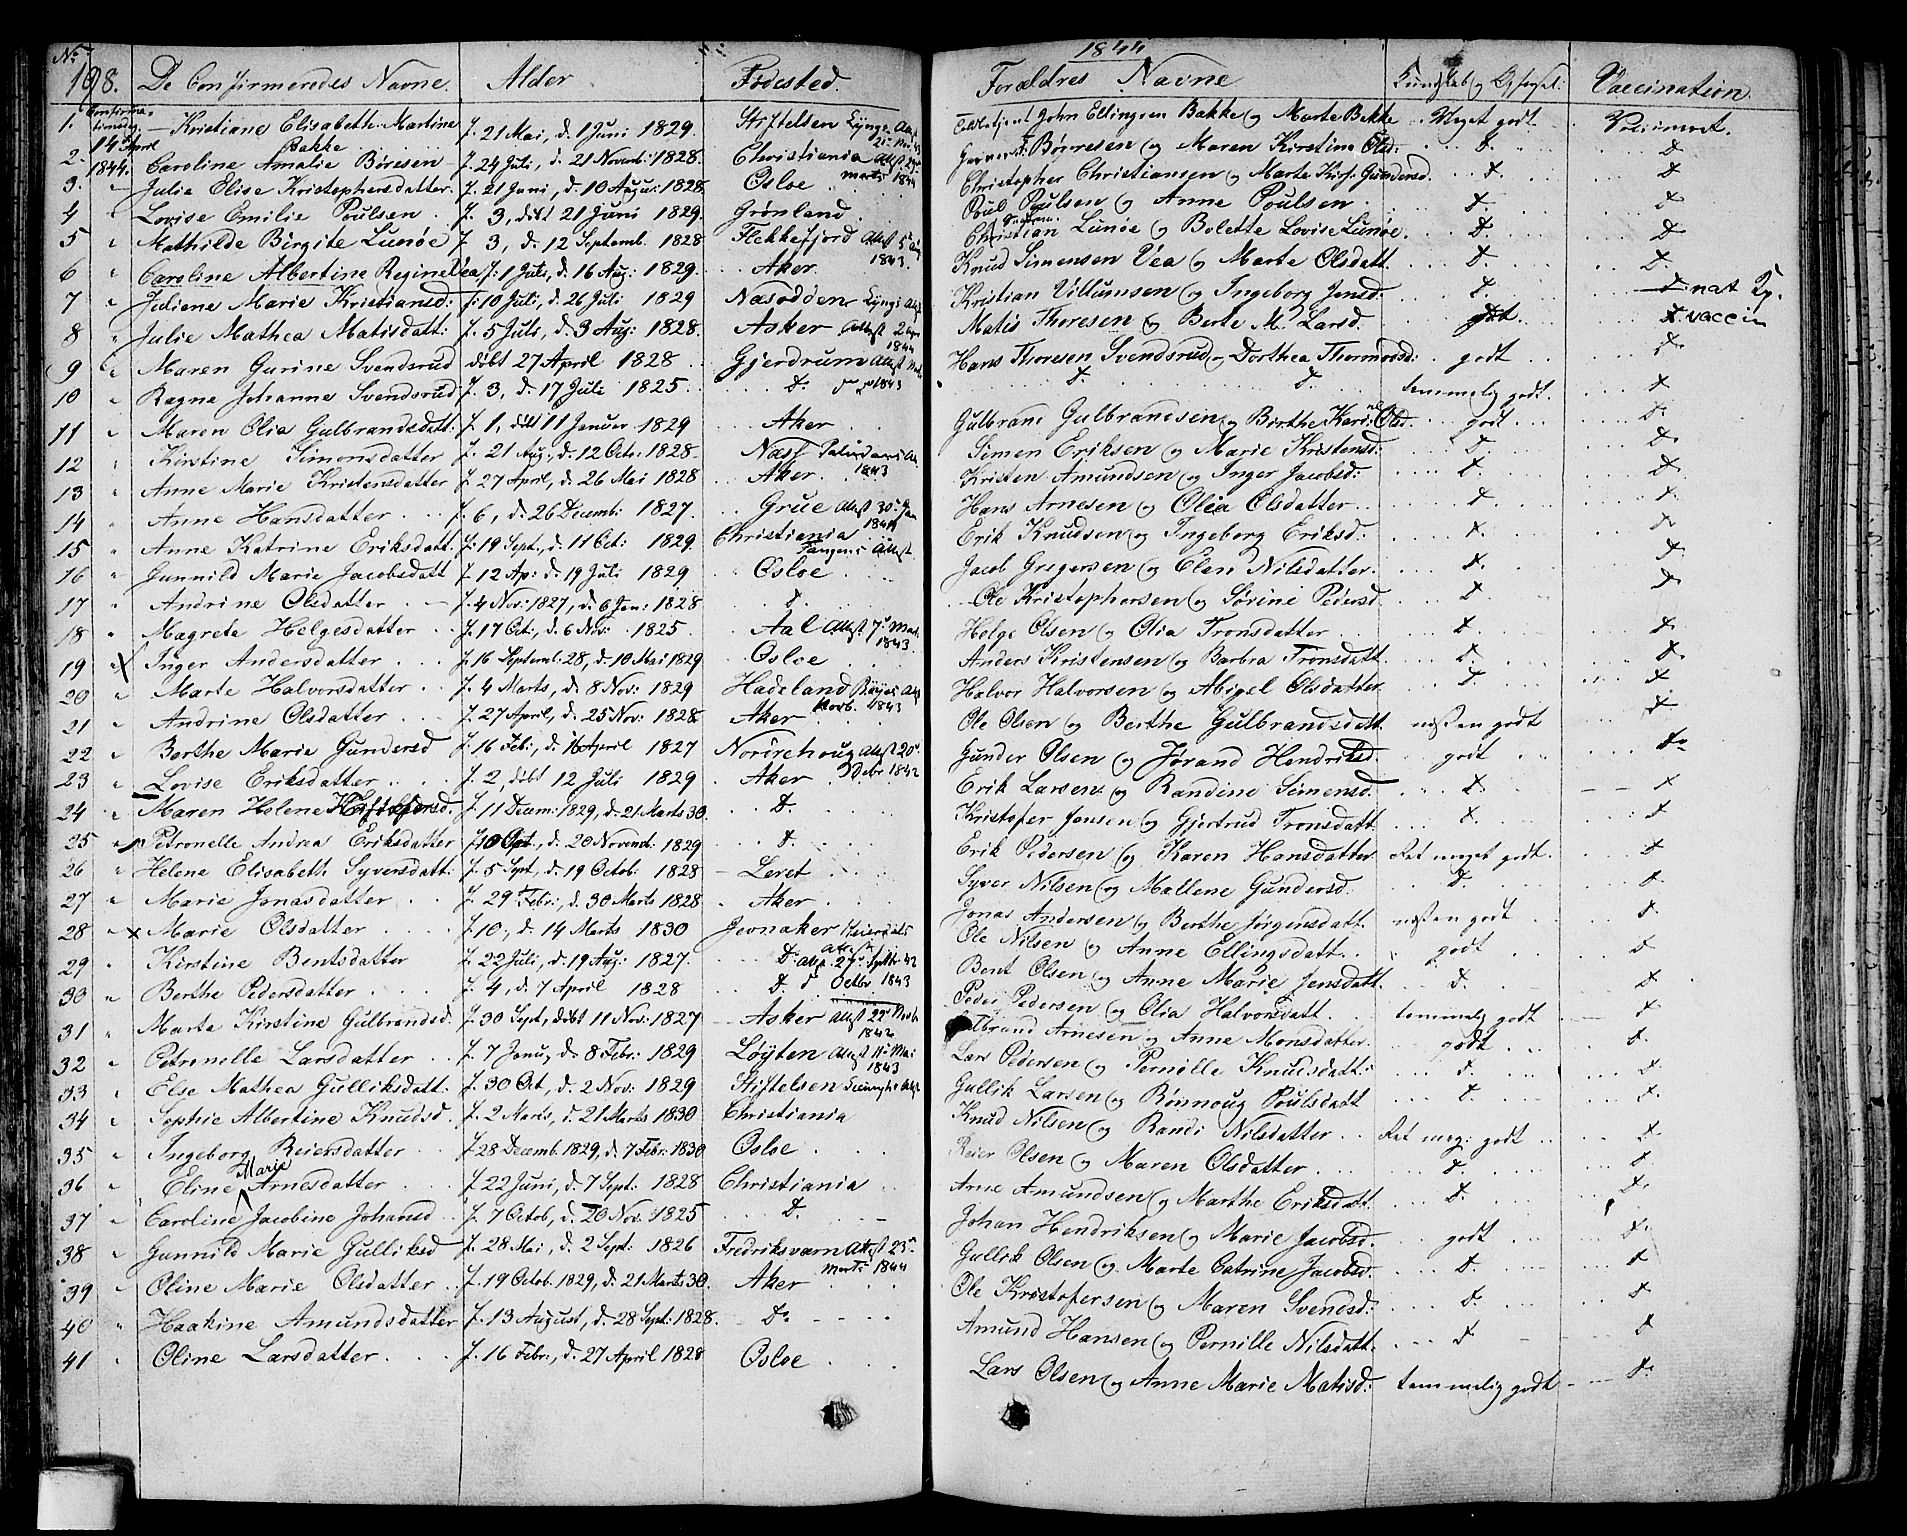 No. 198. De Confirmeredes Navne. Alder Fødested. 1844 Forældres Navne Kundskab og Opførsel: Vaccination.
Confirmationsdag 14 April 1844.
1. Kristiane Elisabeth Martine Bakke f. 21 Mai, d. 1 Juni 1829. Stiftelsen John Ellingsen Bakke og Marte Bakke Meget godt Vaccineret.
2. Caroline Amalie Børesen f. 24 Juli, d. 21 Novemb: 1828. Christiania Attest 29 Marts 1844 Børresen og Maren Kirstine Olsd: D. D.
3. Julie Elise Kristophersdatter. f. 21 Juni, d. 10 Augus: 1828. Osloe Christopher Christiansen og Marte Kirst: Gundersd. D. D.
4 Lovise Emilie Poulsen f. 3, døbt 21 Juni 1829. Grønland Poul Poulsen og Anne Poulsen D. D.
5 Mathilde Birgite Lunøe f. 3, d. 12 Septemb. 1828 Flekkefjord Attest 1843. Christian Lunøe og Bolette Lovise Lunøe. D. D.
6 Caroline Albertine Regine Vea f: 1 Juli, d. 16 Aug: 1829. Aker. Knud Simensen Vea og Marte Olsdatt. D. D.
7 Juliene Marie Kristiansd: f: 10 Juli, d. 26 Juli 1829 Nasodden Kristian Villumsen og Ingeborg Jensd: D. nat Kp.
8 Julie Mathea Matisdatt: f. 5 Juli, d. 3 Aug: 1828. Asker Attest 1844 Matis Thoresen og Berte M. Larsd. godt. vaccin
9 Maren Gurine Svendsrud døbt 27 April 1828 Gjerdrum Attest 1843 Hans Thoresen Svendsrud og Dorthea Thormodsd: godt D.
10 Ragne Johanne Svendsrud f. 3, d. 17 Juli 1825. D. D. D. temmelig godt. D.
11 Maren Olia Gulbrandsdatt: f. 1, døbt 11 Januar 1829 Aker Gulbrand Gulbrandsen og Birthe Kari Olsd. godt D.
12 Kirstine Simonsdatter f. 21 Aug: d. 12 Octr: 1828. Næss 1843 Simen Eriksen og Marie Kristensd: D. D.
13 Anne Marie Kristensdatter f. 27 April, d. 26 Mai 1828 Aker. Kristen Amundsen og Inger Jacobsd: D. D.
14 Anne Hansdatter f. 6, d. 26 Decemb: 1827. Grue Attest 30 Jan 1844 Hans Arnesen og Olia Olsdatter D. D.
15 Anne Katrine Eriksdatt. f: 19 Sept., d. 11 Oct: 1829. Christiania Erik Knudsen og Ingeborg Eriksd: D. D.
16 Gunnild Marie Jacobsdatt f. 12 Ap: d. 19 Juli 1829 Osloe Jacob Gregersen og Elen Nilsdatter. D. D.
17 Andrine Olsdatter f. 4 Nov: 1827, d. 6 Jan: 1828 D. Ole Kristophersen og Sørine Pedersd D. D.
18 Magrete Helgesdatter f. 17 Oct., d. 6 Nov: 1825. Aal Attest 7 1843. Helge Olsen og Olia Tronsdatter D. D.
19 Inger Andersdatter f. 16 Septemb. 28, d. 10 Mai 1829 Osloe Anders Kristensen og Barbra Tronsdatt. D. D.
20 Marte Halvorsdatter f. 4 Marts, d. 8 Nov: 1829 Hadeland 1843 Halvor Halvorsen og Abigel Olsdatter D. D.
21 Andrine Olsdatter f. 27 April, d. 25 Nov: 1828. Aker Ole Olsen og Berthe Gulbrandsdatt næsten godt D.
22 Berthe Marie Gundersd f. 16 Feb:, d. 16 April 1827 Norørehoug Attest 20 1842 Gunder Olsen og Jørand Hendriksd. godt D.
23 Lovise Eriksdatter f. 2, døbt 12 Juli 1829 Aker Erik Larsen og Randine Simensd. D. D.
24 Maren Helene Kristofersd. f. 11 Decem: 1829, d. 21 Marts 30. D. Kristofer Jensen og Gjertrud Tronsdatt. D. D.
25 Petronelle Andrea Eriksdatter f. 10 Sept., d. 20 Novemb: 1829 D. Erik Pedersen og Karen Hansdatter Ret meget godt. D.
26 Helene Elisabeth Syversdatt: f. 5 Sept, d. 19 Octob: 1828 Leret Syver Nilsen og Mallene Gundersd: D. D.
27 Marie Jonasdatter f. 29 Febr:, d. 30 Marts 1828 Aker. Jonas Andersen og Berthe Jørgensdatt næsten godt D.
28 Marie Olsdatter f. 10., d. 14 Marts 1830 Jevnaker Ole Nilsen og Anne Ellingsdatt. godt D.
29 Kirstine Bentsdatter f. 22 Juli, d. 19 Aug: 1827. D. Bent Olsen og Anne Marie Jensdatt. D. D.
30 Berthe Pedersdatter f. 4, d. 7 April 1828 D. Octbr 1843 Peder Pedersen og Olia Halvorsdatt. temmelig godt D.
31 Marte Kirstine Gulbrandsd. f. 30 Sept, døbt 11 Nov: 1827 Asker 1842 Gulbrand Arnesen og Anne Monsdatter. godt D.
32 Petronelle Larsdatter f. 7 Janu, d. 8 Febr: 1829 Løyten Attest 11 Mai 1843 Lars Pedersen og Pernille Knudsdatt: D. D.
33 Else Mathea Gulliksdatt: f. 30 Oct, d. 2 Nov: 1829 Stiftelsen Gullik Larsen og Rønnoug Poulsdatt D. D.
34 Sophie Albertine Knudsd. f. 2 Marts, d. 21 Marts 1830 Christiania Knud Nilsen og Randi Nilsdatter Ret meg: godt D.
35 Ingeborg Reiersdatter f. 28 Decemb. 1829, d. 7 Febr: 1830 Osloe Reier Olsen og Maren Olsdatter D. D.
36 Eline Marie Arnesdatter f. 22 Juni, d. 7 Sept: 1828 Christiania Arne Amundsen og Marthe Eriksdatt. D. D.
37 Caroline Jacobine Johansd f. 7 Octob, d. 20 Nov: 1825 D. Johan Hendriksen og Marie Jacobsd. godt D.
38 Gunnild Marie Gulliksd f. 28 Mai, d. 2 Sept: 1826 Fredriksværn Attest 23 Marts 1844 Gullik Olsen og Marte Catrine Jacobsd. D. D.
39 Oline Marie Olsdatter f. 19 Octob. 1829, d. 21 Marts 30. Aker Ole Kristofersen og Maren Svendsd: D. D.
40 Haakine Amundsdatter f. 13 August, d. 28 Sept: 1828. D. Amund Hansen og Pernille Nilsdatt. D. D.
41 Oline Larsdatter f. 16 Febr:, d. 27 April 1828 Osloe Lars Olsen og Anne Marie Matisd: temmelig godt D.